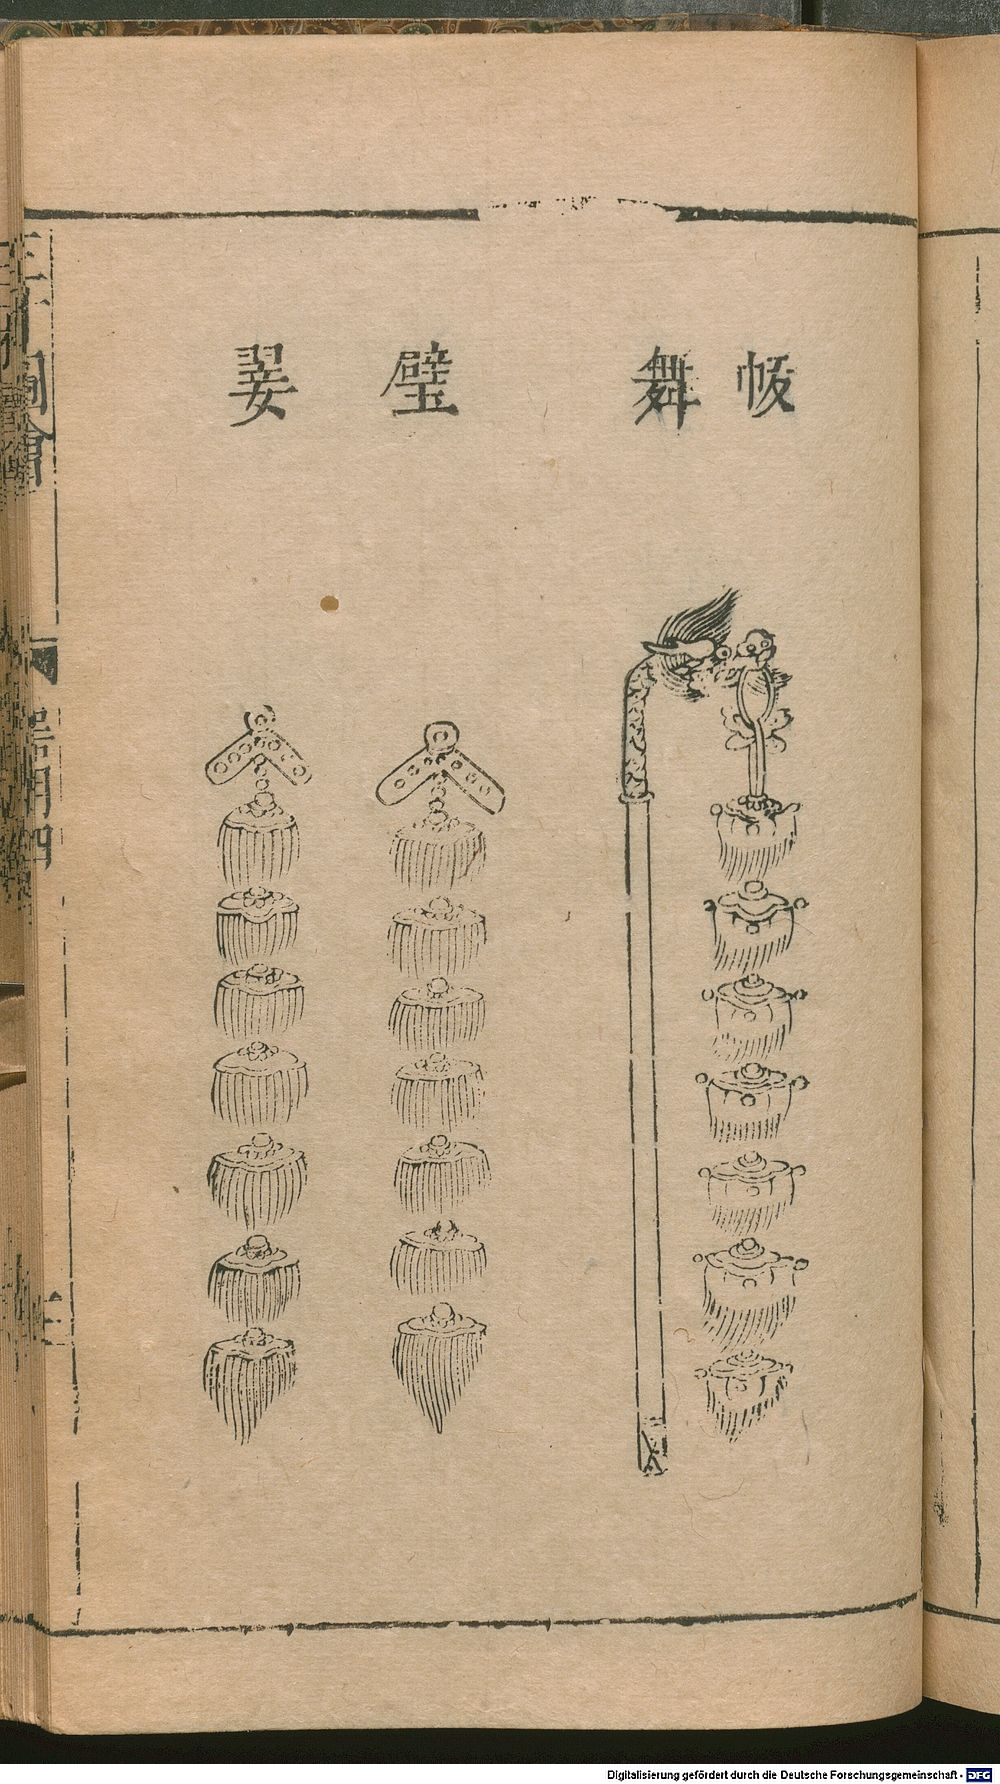 帗舞
璧翣
三才圖會
器用四
Digitalisierung gefördert durch die Deutsche Forschungsgemeinschaft - DFG